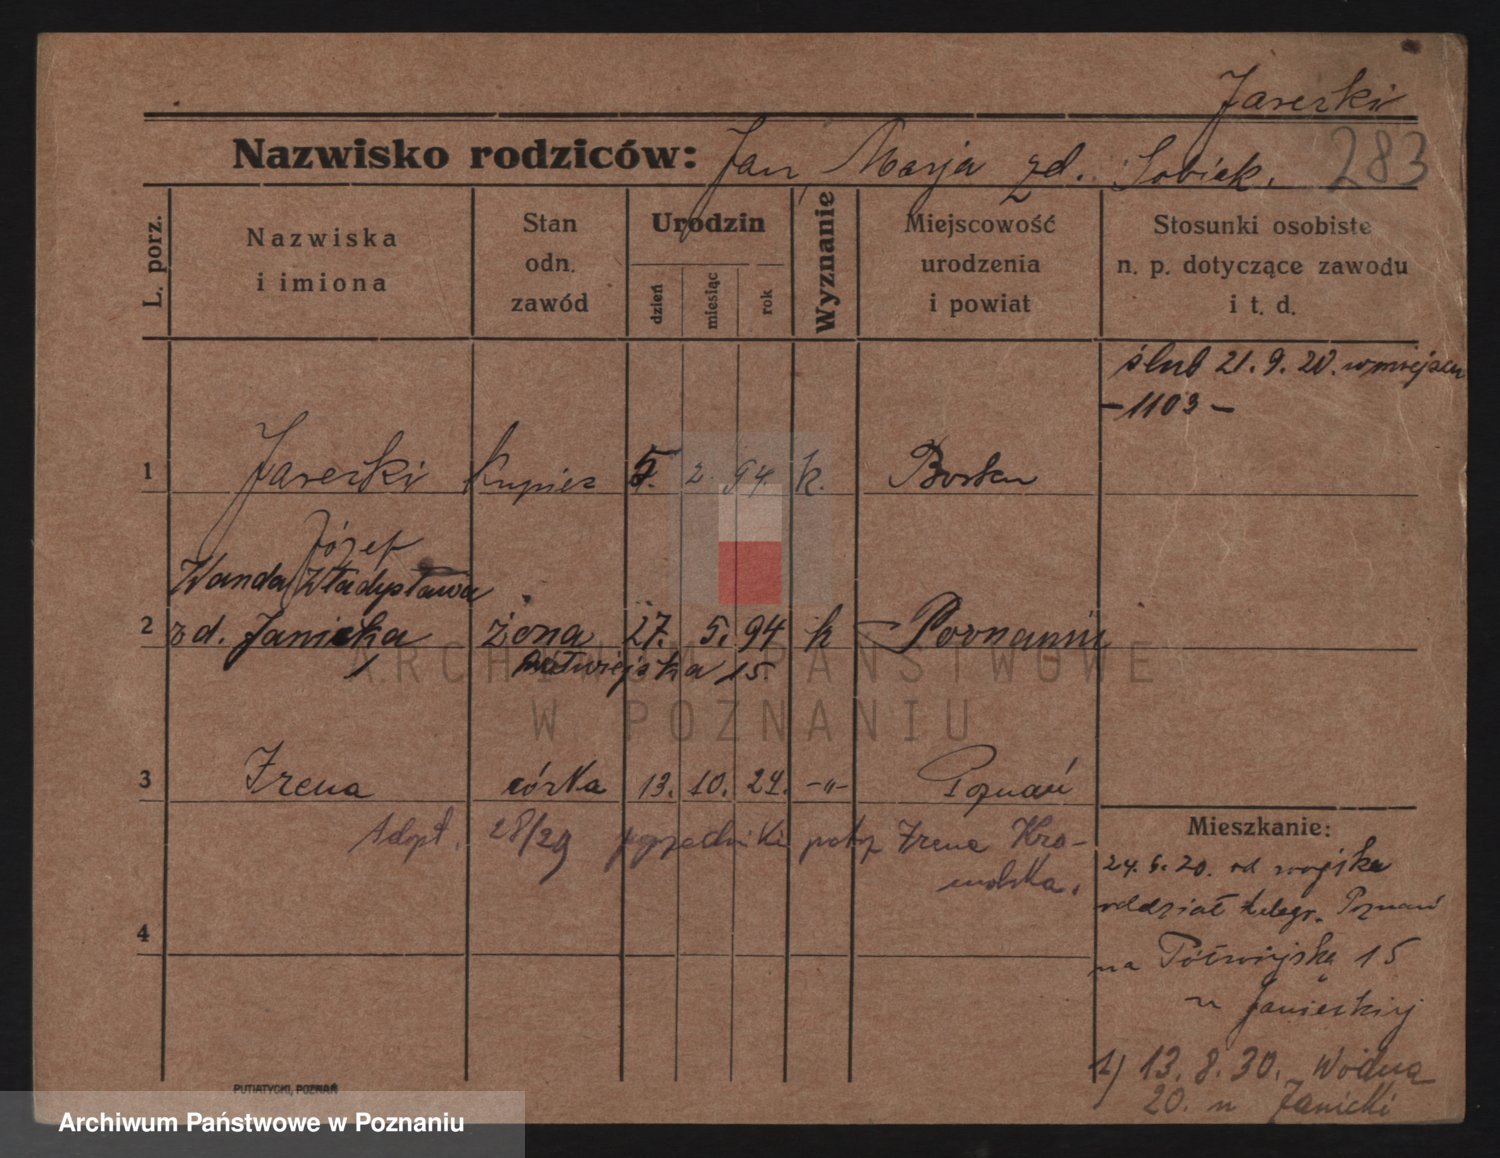 Jarecki
Nazwisko rodziców: Jan, Marja zd. Sobiek. 283
L. porz.
Nazwiska i imiona
Stan odn. zawód
Urodzin
dzień
miesiąc
rok
Wyznanie
Miejscowość urodzenia i powiat
Stosunki osobiste n. p. dotyczące zawodu i t. d.
ślub 21. 9. 20. w miejscu
- 1103 -
1 Jarecki kupiec 5. 2. 94. k. Borku
Józef
Wanda Władysława
2 zd. Janicka żona 27. 5. 94 k Poznaniu
Półwiejska 15
3 Irena córka 13. 10. 24. -"- Poznań
Adopt. 28/29 poprzednio Irena Kro-
molska.
4
Mieszkanie:
24. 6. 20. od wojska
oddział telegr. Poznań
na Półwiejską 15
u Janieckiej
1) 13. 8. 30. Wodna
20. u Janicki
PUTIATYCKI, POZNAŃ
ARCHIWUM PAŃSTWOWE
W POZNANIU
Archiwum Państwowe w Poznaniu